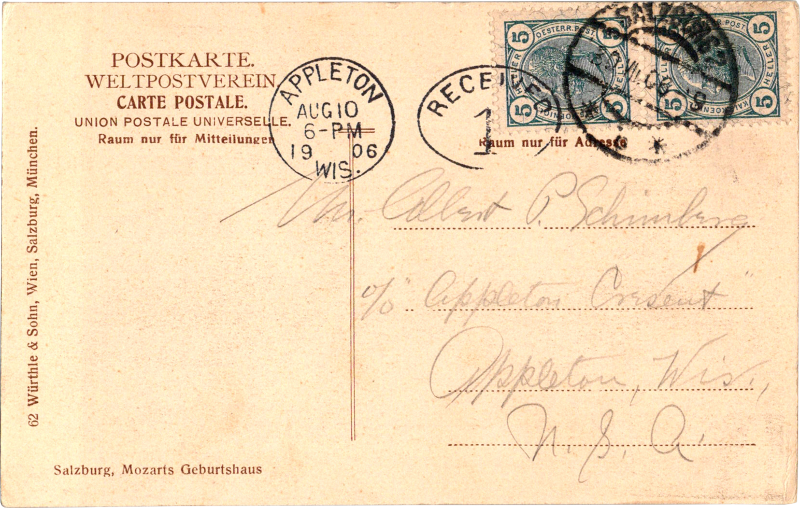 POSTKARTE.
WELTPOSTVEREIN
CARTE POSTALE.
UNION POSTALE UNIVERSELLE.
Raum nur für Mitteilungen
APPLETON
AUG 10
6-PM
19 06
WIS.
RECEIVED
1
5 OESTERR. POST 5
5 5
SALZBURG 2
5 5
HELLER
5 5
Raum nur für Adresse
Mr. Albert P. Schimberg
c/o "Appleton Cresent"
Appleton, Wis.,
U. S. A.
62 Würthle & Sohn, Wien, Salzburg, München.
Salzburg, Mozarts Geburtshaus